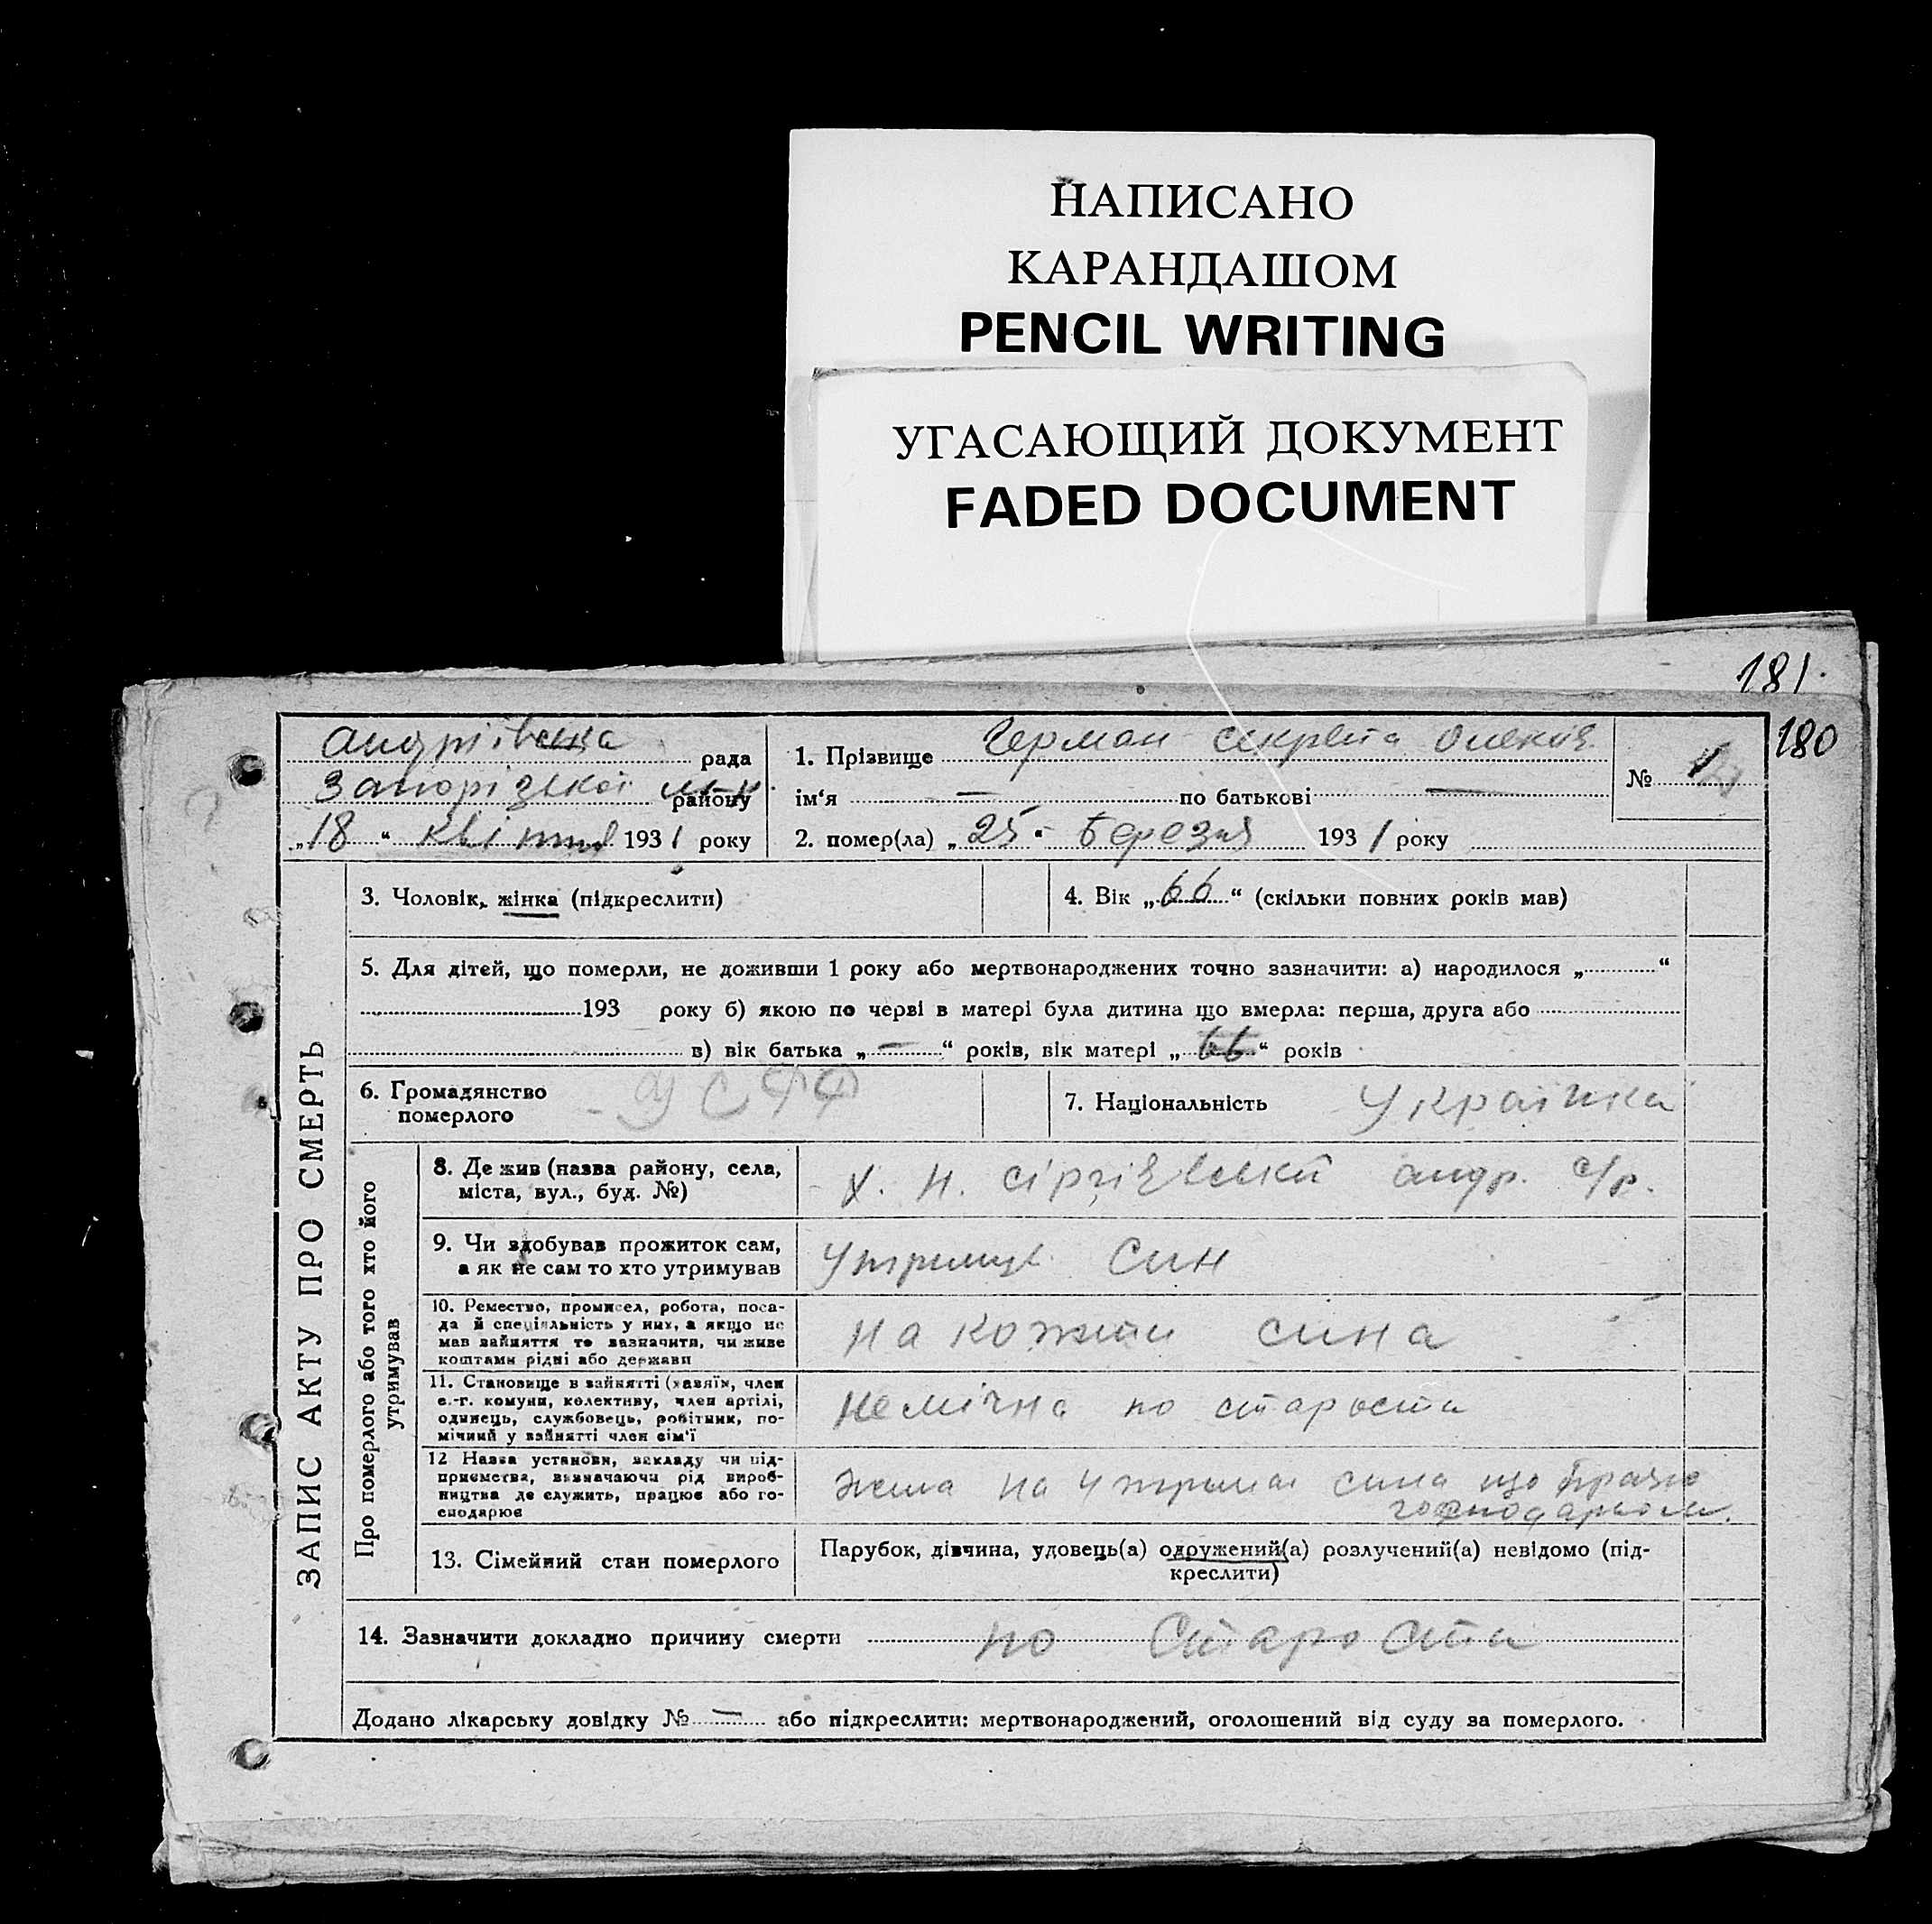 НАПИСАНО
КАРАНДАШОМ
PENCIL WRITING
УГАСАЮЩИЙ ДОКУМЕНТ
FADED DOCUMENT
181.
180
Андріївська рада
Запорізької району
„18“ квітня 1931 року
1. Прізвище Герман Олексіє
ім‘я — по батькові —
2. помер(ла) „25 Березня 1931 року
№
ЗАПИС АКТУ ПРО СМЕРТЬ
3. Чоловік, жінка (підкреслити)
4. Вік „66“ (скільки повних років мав)
5. Для дітей, що померли, не доживши 1 року або мертвонароджених точно зазначити: а) народилося „ “
193 року б) якою по черві в матері була дитина що вмерла: перша, друга або
в) вік батька „—“ років, вік матері „66“ років
6. Громадянство
померлого
7. Національність Українка
Про померлого або того хто його
утримував
8. Де жив (назва району, села,
міста, вул., буд. №)
х. Н. Сіргіевський андр. с/р.
9. Чи здобував прожиток сам,
а як не сам то хто утримував
Утримув син
10. Ремество, промисел, робота, поса-
да й спеціяльність у них, а якщо не
мав зайняття то зазначити, чи живе
коштами рідні або держави
на кожти сина
11. Становище в зайнятті (хазяїн, член
с.-г. комуни, колективу, член артілі,
одинець, службовець, робітник, по-
мічний у зайнятті член сім‘ї
Немічна по старости
12 Назва установи, закладу чи під-
приємства, зазначаючи рід вироб-
ництва де служить, працює або го-
сподарює
жила на утриман сина що працю
господарьом.
13. Сімейний стан померлого
Парубок, дівчина, удовець(а) одружений(а) розлучений(а) невідомо (під-
креслити)
14. Зазначити докладно причину смерти по старости
Додано лікарську довідку № — або підкреслити: мертвонароджений, оголошений від суду за померлого.